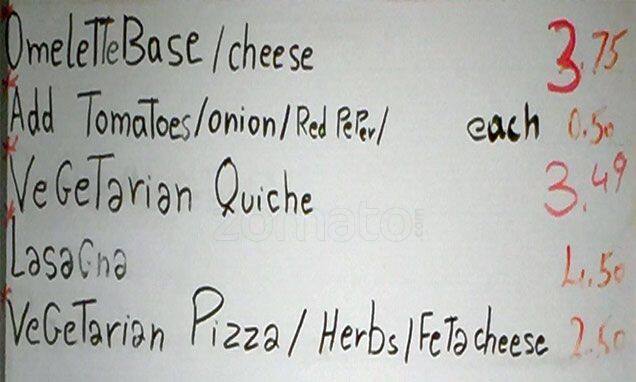 OmeleTTeBase/cheese 3.75
Add TomaToes/onion/Red PePer/ each 0.50
VeGeTarian Quiche 3.49
zomato
LasaGna 4.50
VeGeTarian Pizza/Herbs/FeTacheese 2.50